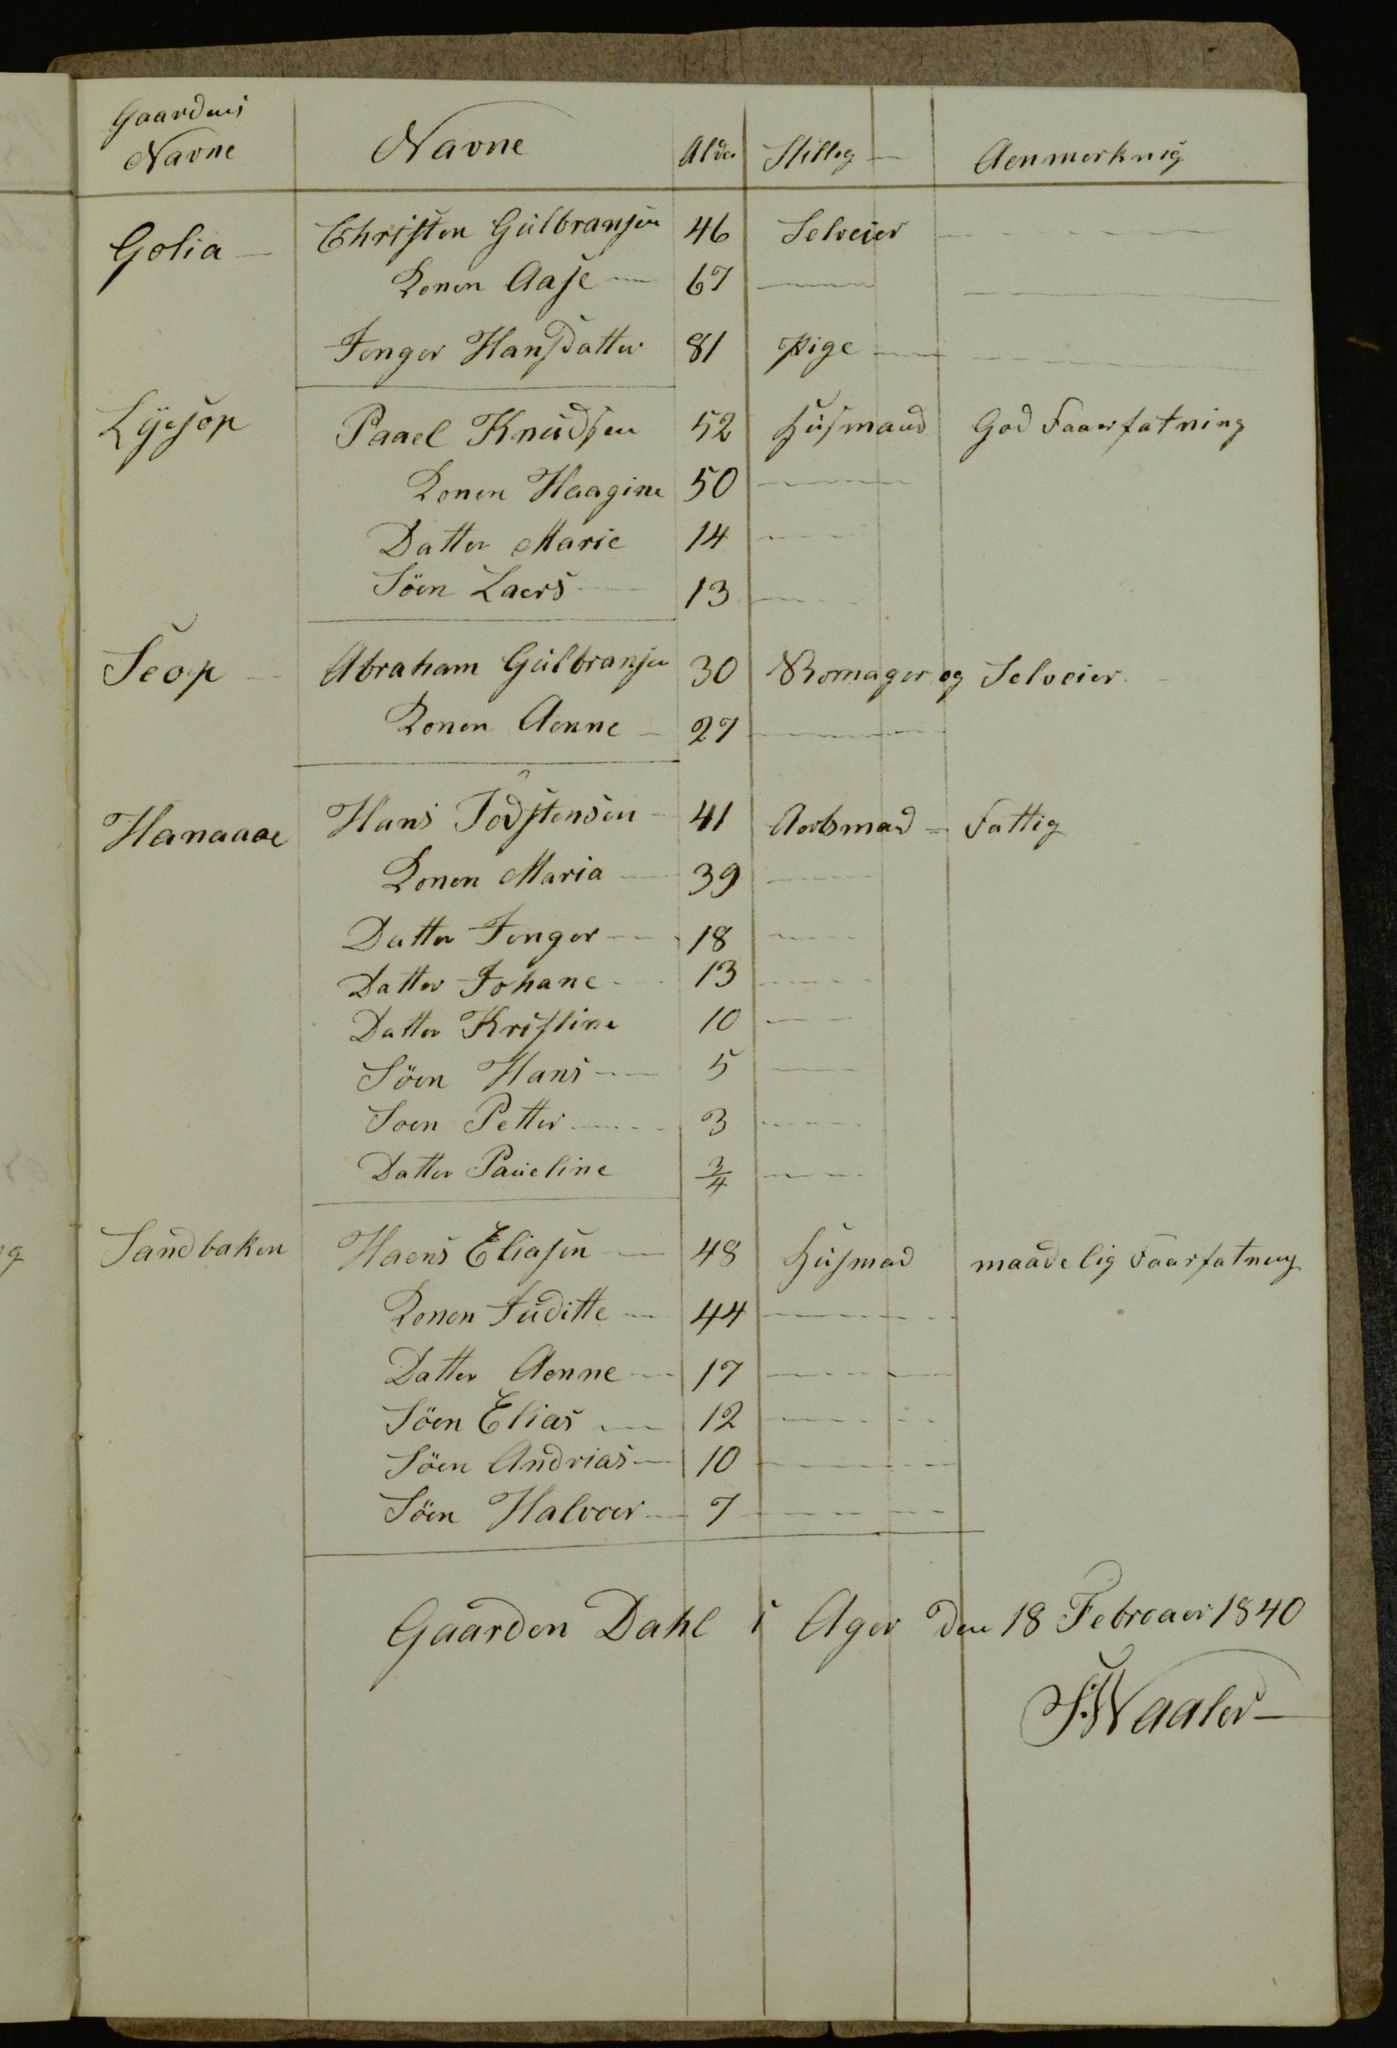 Gaardens
Navne Navne Alder Stilleg Aenmerknig
Golia Christen Gulbransen 46 Selveier
Konen Aase 67
Jenger Hansdatter 81 Pige
Lÿesop Paael Knudsen 52 Husmand God Faaerfatning
Konen Haagine 50
Datter Marie 14
Søen Laers 13
Seop Abraham Gulbransen 30 Skomager og Selveier
Konen Aenne 27
Hanaaae Hans Todstensen 41 Arbsmad Fattig
Konen Maria 39
Datter Jenger 18
Datter Johane 13
Datter Kristine 10
Søen Hans 5
Soen Petter 3
Datter Paueline 3/4
Sandbaken Haens Eliasen 48 Husmad maadelig Faarfatning
Konen Juditte 44
Datter Aenne 17
Søen Elias 12
Søen Andrias 10
Søen Halvoer 7
Gaarden Dahl i Ager den 18 Februaer 1840
Waaler